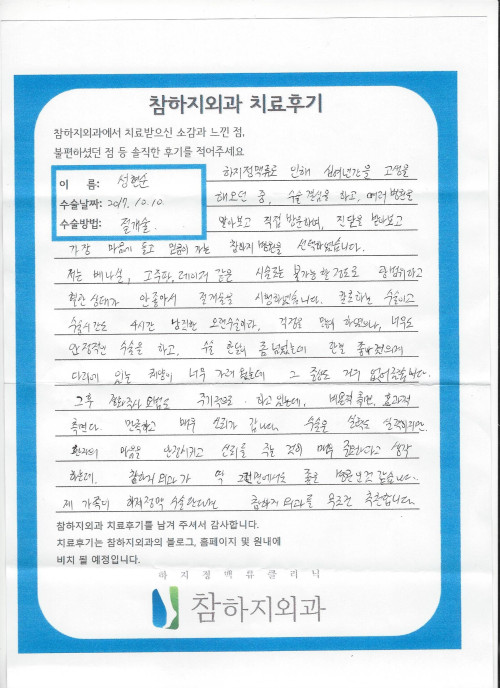 참하지외과 치료후기
참하지외과에서 치료받으신 소감과 느낀 점,
불편하셨던 점 등 솔직한 후기를 적어주세요
이 름: 성현순
수술날짜: 2017. 10. 10.
수술방법: 절개술.
하지정맥류로 인해 십여년간을 고생을
해오던 중, 수술 결심을 하고, 여러 병원을
알아보고 직접 방문하며, 진단을 받아보고
가장 마음에 들고 믿음이 가는 참하지 병원을 선택하였습니다.
저는 베나실, 고주파, 레이저 같은 시술로는 불가능할 정도로 광범위하고
혈관 상태가 안좋아서 절개술을 시행하였습니다. 종류하는 수술이고
수술시간도 4시간 남짓한 오랜수술이라, 걱정을 많이 하였으나, 너무도
안정적인 수술을 하고, 수술 한달이 좀 넘었는데 관절 좋아졌으며
다리에 있는 피부가 너무 가려웠는데 그 증상도 거의 없어졌습니다.
그후 혈관주사 요법도 주기적으로 하고 있는데, 비용적 측면, 효과적
측면 다 만족하고 매우 신뢰가 갑니다. 수술은 실력도 실력이지만,
환자의 마음을 안정시키고 신뢰를 주는 것이 매우 중요하다고 생각
하는데, 참하지외과가 딱 그런면에서도 좋은 병원인것 같습니다.
제 가족이 하지정맥 수술한다면 참하지외과를 무조건 추천합니다.
참하지외과 치료후기를 남겨 주셔서 감사합니다.
치료후기는 참하지외과의 블로그, 홈페이지 및 원내에
비치 될 예정입니다.
하지정맥류클리닉
참하지외과